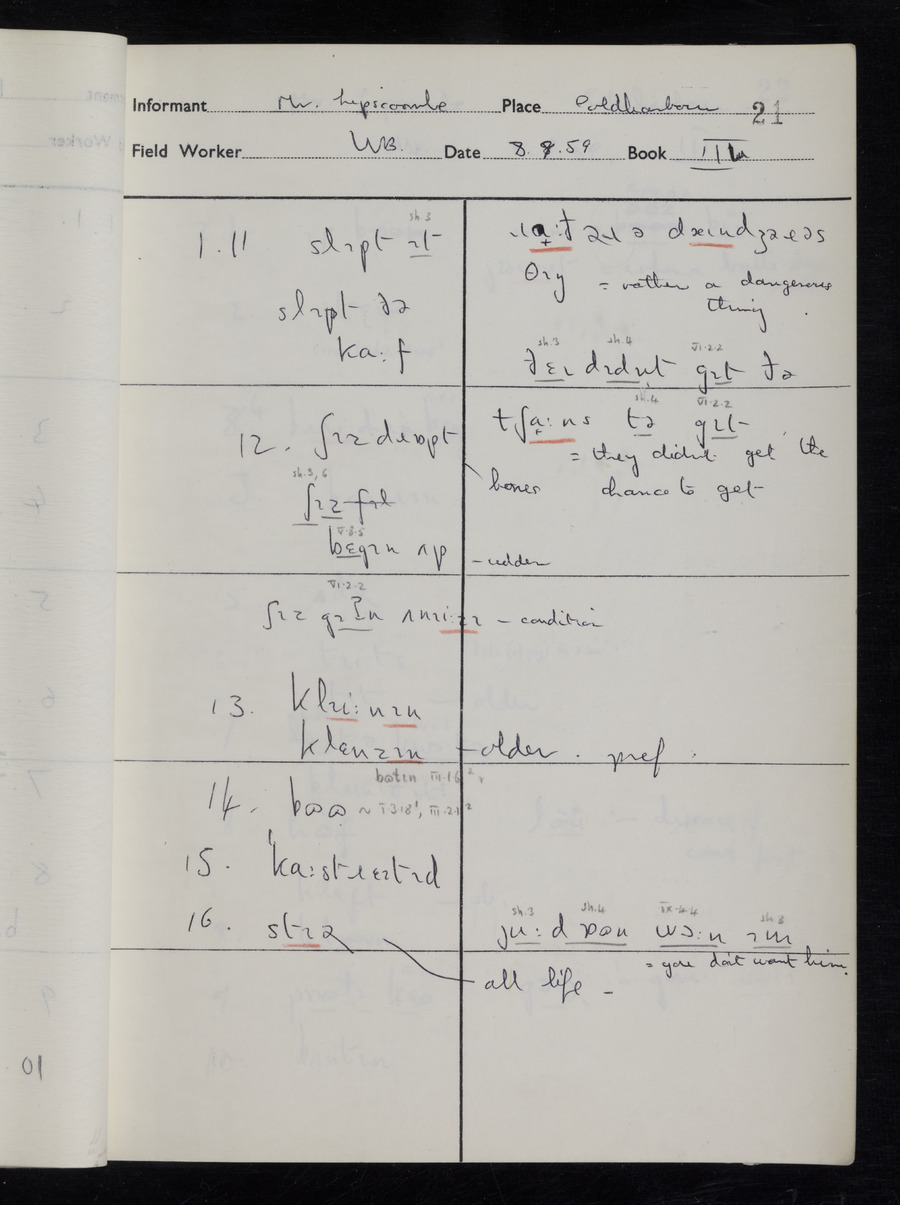 Informant Mr. Lipscombe Place Coldharbour 21
Field Worker WB. Date 8.8.59 Book III
1.11 slɪpt ɪt
sh.3
slɪpt ðə
ka:f
θɪŋ = rather a dangerous
thing.
sh.3 sh.4 VI.2.2
ðɛɪ dɪdnt gɪt ðə
12. ʃɪz dɹɒpt
sh.3,6
ʃɪz fɪl
V.8.5
bɛgɪn ʌp
sh.4 VI.2.2
tʃa:ns tə gɪt
= they didnt get the
bones chance to get
– udder
VI.2.2
– condition
13. klɪi:nɪn
klɛnzɪn – older. pref.
14. bɷɷ
15. ˈka:stɹɛɪtɪd
16. stɪə
sh.3 sh.4 IX.4.4 sh.3
ju:d ɷn wɔ:n ɪm
= you don't want him.
all life –
10